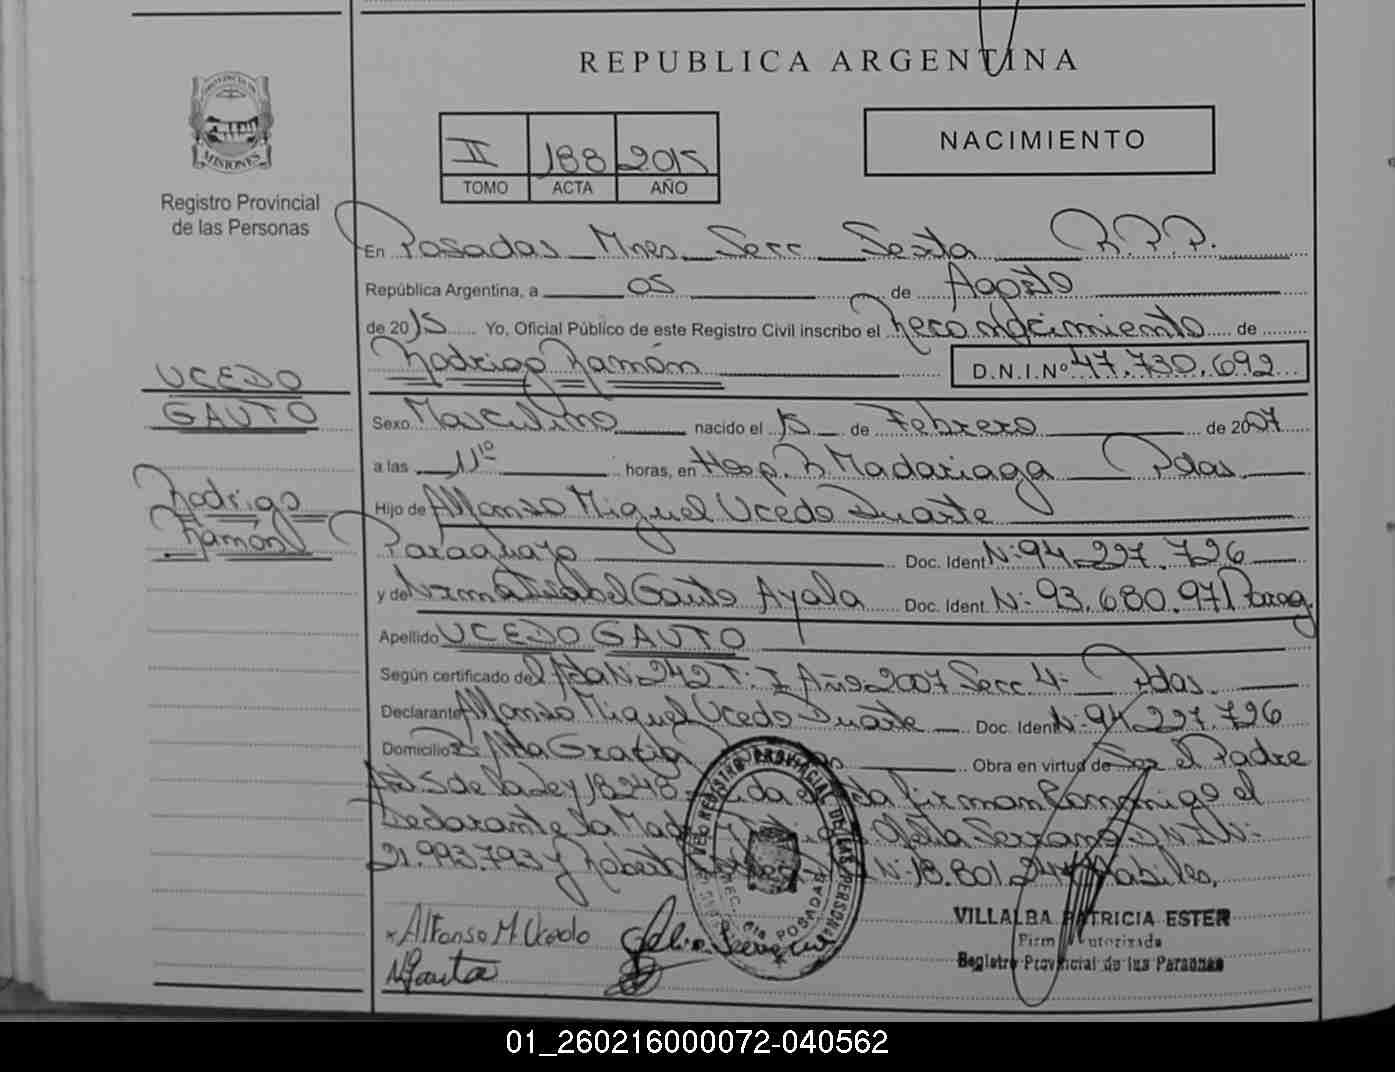 REPUBLICA ARGENTINA
PROVINCIA DE
MISIONES
Registro Provincial
de las Personas
II 188 2015
TOMO ACTA AÑO
NACIMIENTO
En Posadas Mnes. Secc Sexta R.P.P.
República Argentina, a 05 de Agosto
de 2015 Yo, Oficial Público de este Registro Civil inscribo el Reconocimiento de
Rodrigo Ramón D.N.I.Nº 47.730.692
UCEDO
GAUTO
Rodrigo
Ramón
Sexo Masculino nacido el 15 de Febrero de 2007
a las 11 10 horas, en Hosp. R. Madariaga Pdas.
Hijo de Alfonso Miguel Ucedo Duarte
Paraguayo Doc. Ident. Nº 94.227.726
y de Nirma Isabel Gauto Ayala Doc. Ident. Nº 93.680.971 Parag.
Apellido UCEDO GAUTO
Según certificado del Acta Nº 242 T: I Año 2007 Secc 4- Pdas.
Declarante Alfonso Miguel Ucedo Duarte Doc. Ident. Nº 94.227.726
Domicilio Bº Alta Gracia Obra en virtud de Ser el Padre
Art. 5 de la Ley 18248 firman Conmigo el
Declarante la Serrano D.N.I. Nº
21.993.793 y Nº 18.801.247 Habiles.
REGISTRO PROVINCIAL DE LAS PERSONAS
SEC. 6ta POSADAS
Alfonso M Ucedo
NGauto
VILLALBA PATRICIA ESTER
Firma Autorizada
Registro Provincial de las Personas
01_260216000072-040562